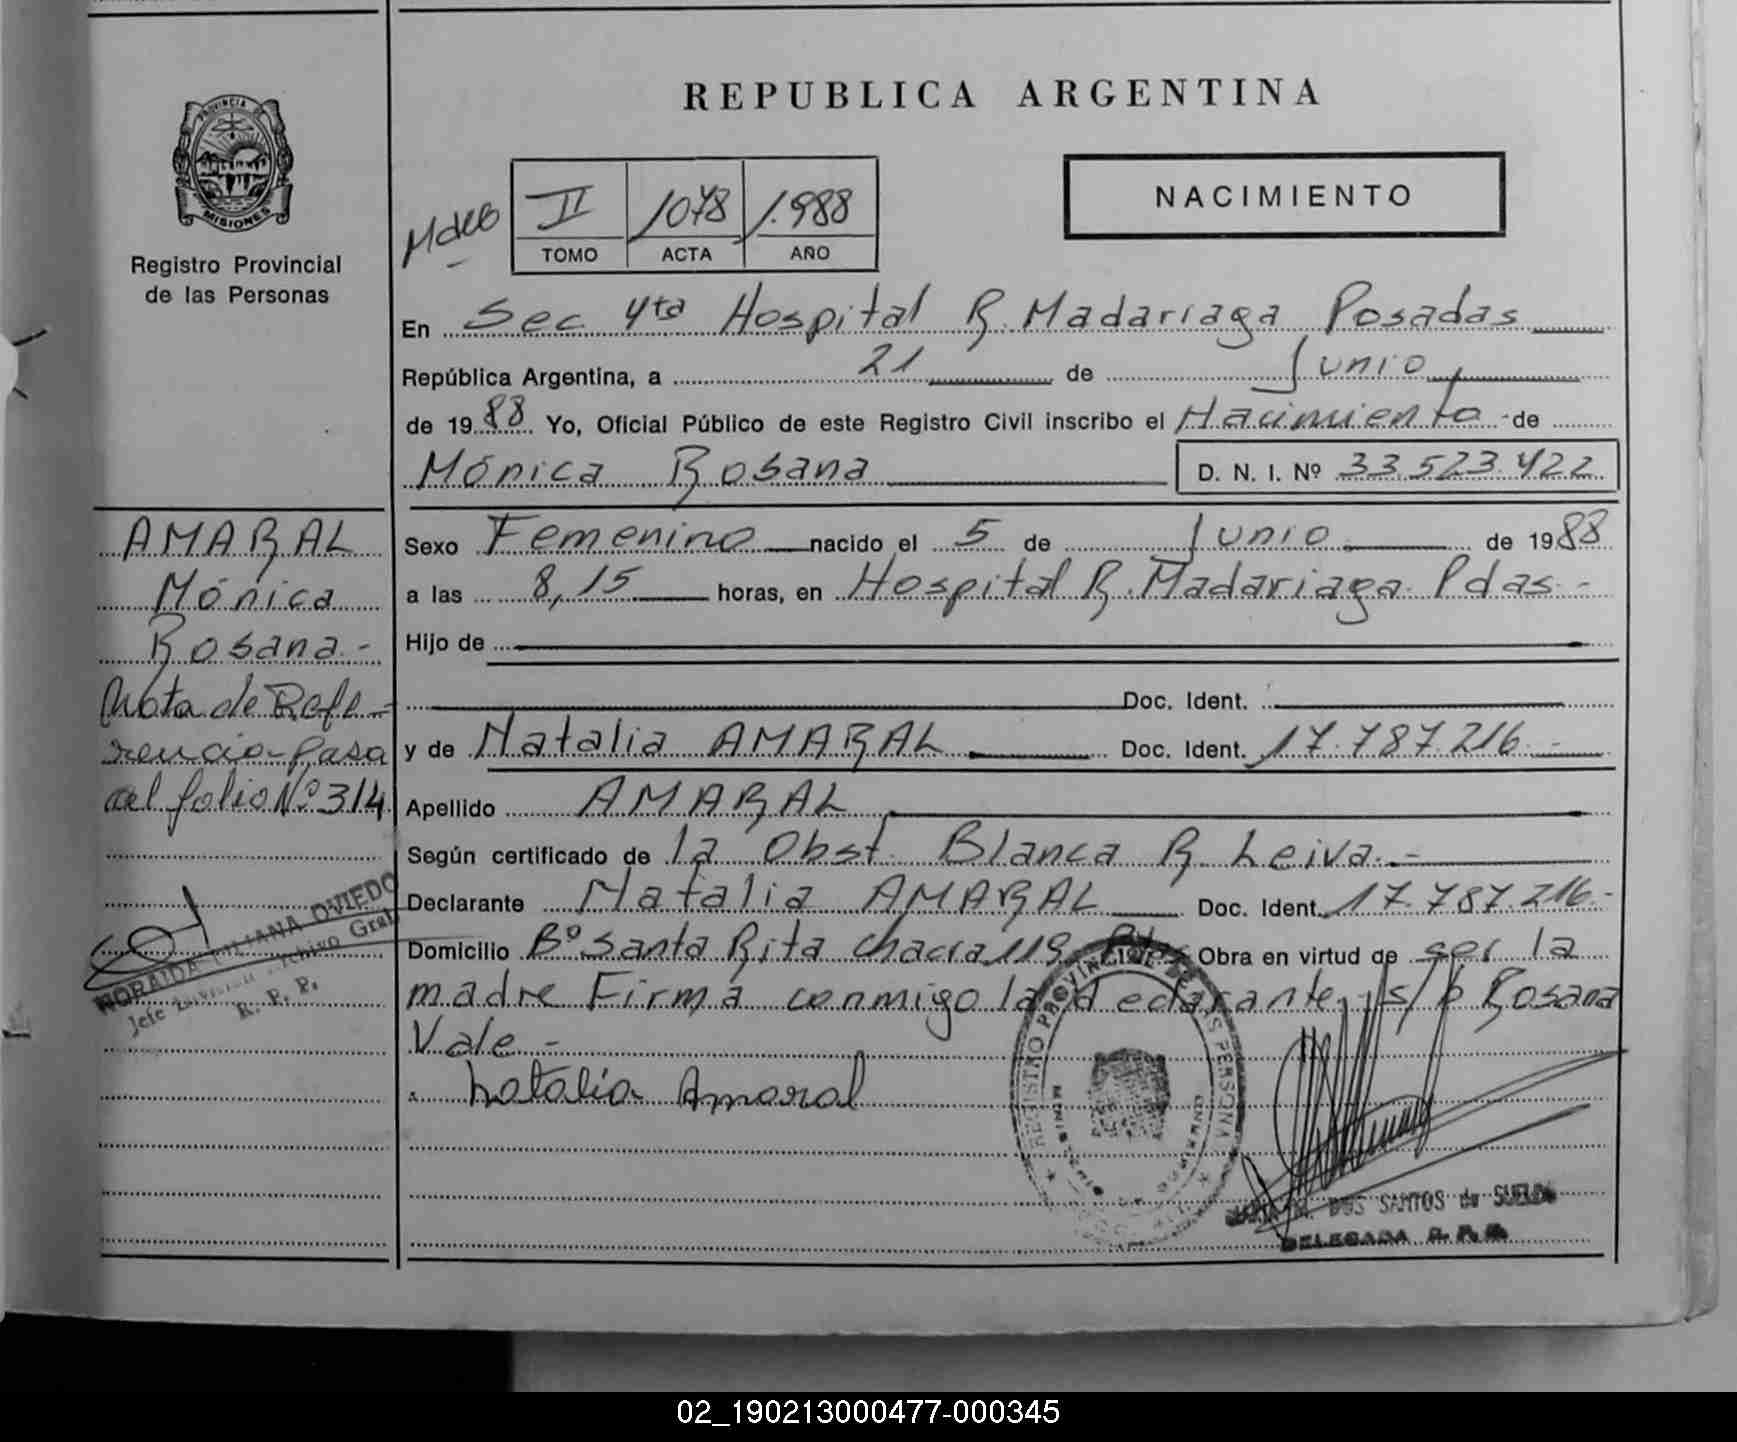 REPUBLICA ARGENTINA
PROVINCIA DE
MISIONES
Registro Provincial
de las Personas
NACIMIENTO
II 1078 1.988
TOMO ACTA AÑO
En Sec 4ta Hospital R. Madariaga Posadas
República Argentina, a 21 de Junio
de 1988 Yo, Oficial Público de este Registro Civil inscribo el Nacimiento de
Mónica Rosana D. N. I. Nº 33.523.422
AMARAL
Mónica
Rosana.-
Nota de Refe-
rencia-Pasa
al folio Nº 314
Sexo Femenino nacido el 5 de Junio de 1988
a las 8,15 horas, en Hospital R. Madariaga Pdas.-
Hijo de
Doc. Ident.
y de Natalia AMARAL Doc. Ident. 17.787.216.-
Apellido AMARAL
Según certificado de la Obst. Blanca R. Leiva.-
Declarante Natalia AMARAL Doc. Ident. 17.787.216.-
Domicilio Bº Santa Rita chacra 119 Pdas Obra en virtud de ser la
madre Firma conmigo la declarante, s/b Rosana
Vale.-
Natalia Amaral
LILIANA OVIEDO
Jefe División Archivo Gral.
R. P. P.
REGISTRO PROVINCIAL DE LAS PERSONAS
DOS SANTOS de SUELDO
DELEGADA R. P. P.
02_190213000477-000345